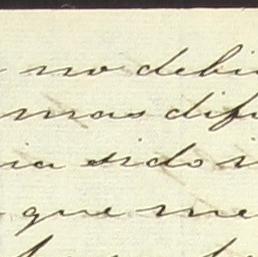 no debi
mas dif
ia sido
que me